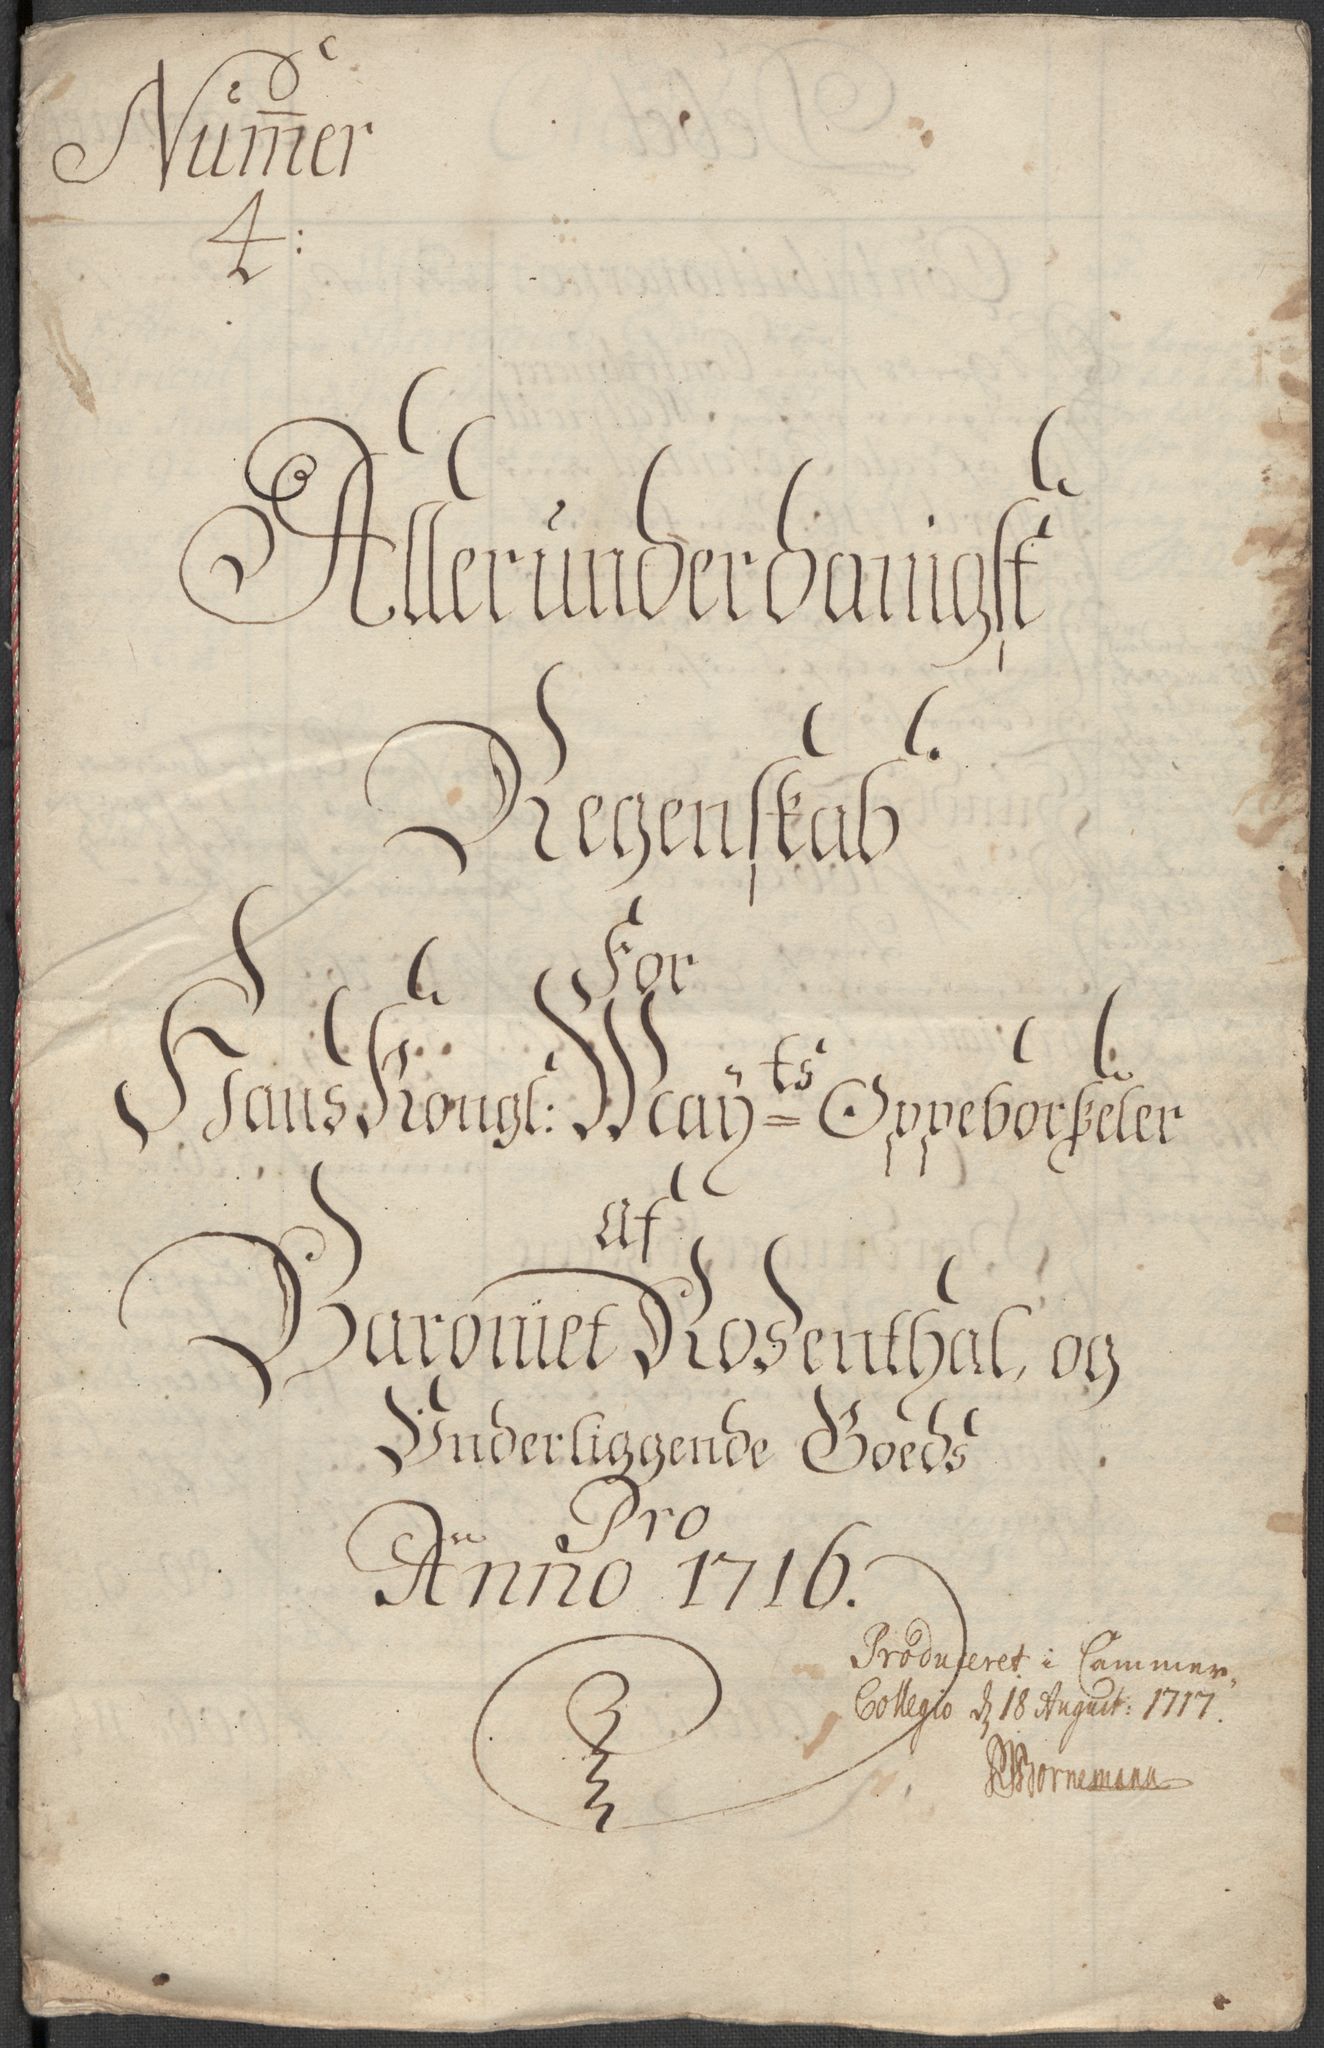 Num̅er
4:
Allerunderdanigst
Regenskab
For
Hans Kongl: May=ts Oppebørßeler
Af
Baroniet Rosenthal, og
Underliggende Goeds
Pro
Anno 1716.
Produceret i Cammer,
Collegio d 18 August: 1717.
Bornemann